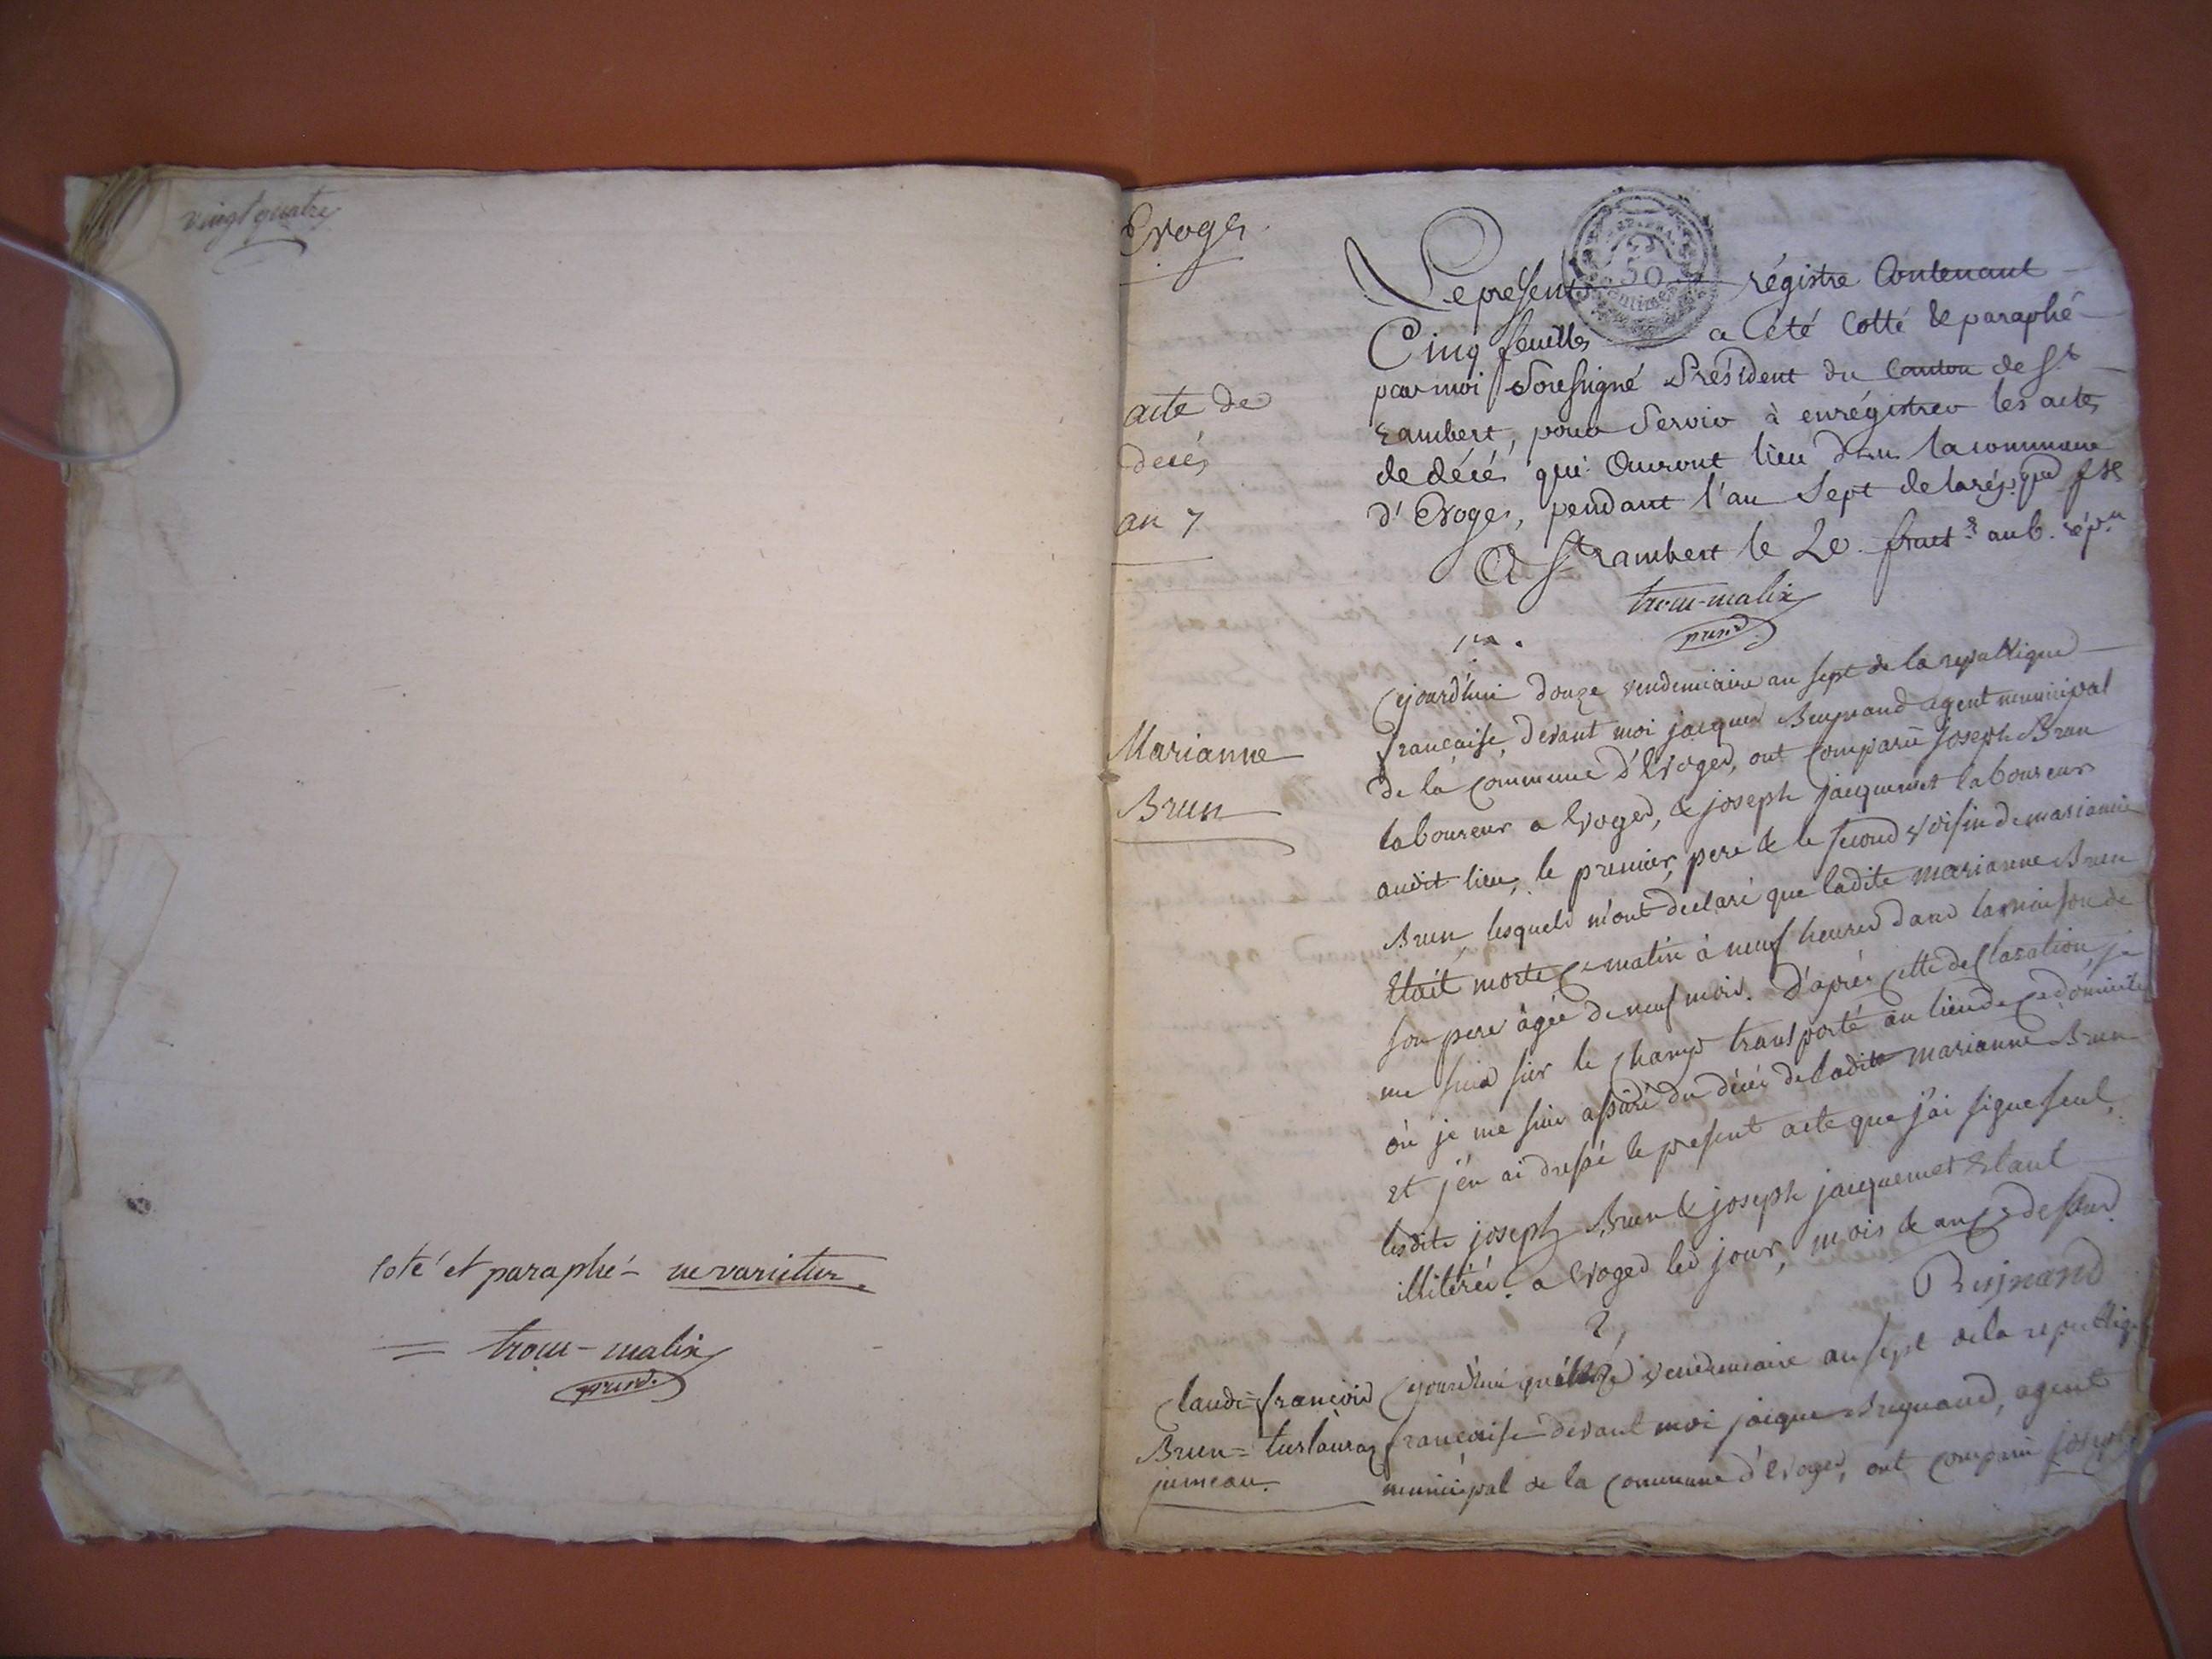 vingt quatre
coté et paraphé ne varietur
= trocu-malix
présid.
Evoges
acte de
décés
an 7
50
centimes
Le présent régistre Contenant
Cinq feuilles a été Cotté & paraphé
par moi Soussigné Président du Canton de St
rambert, pour Servir à enrégistrer les actes
de décés qui auront lieu dans la commune
d'Evoges, pendant l'an Sept de la rép.que fse
A St rambert le 20. fruct.r an 6. rép.n
trocu-malix
présid.
1er.
Marianne
Brun
Cejourd'hui douze vendemiaire an sept de la republique
française, devant moi jacques Reynand agent municipal
de la commune d'Evoges, ont comparu joseph Brun
laboureur a Evoges, & joseph jacquemet laboureur
audit lieu, le premier, pere & le second voisin de marianne
Brun, lesquels m'ont declaré que ladite marianne Brun
Etait morte ce matin à neuf heures dans la maison de
son pere agée de neuf mois. D'après cette declaration, je
me suis sur le champ transporté au lieu de ce domicile
où je me suis assuré du décés de ladite marianne Brun
Et j'en ai dressé le present acte que j'ai signe seul,
lesdits joseph Brun & joseph jacquemet Etant
illitérés. a Evoges les jour, mois & an ci-dessus.
Reynand
2,
Claude=françois
Brun=
jumeau.
Cejourd'hui vendemiaire an sept de la republique
française devant moi jacque Reynand, agent
municipal de la commune d'Evoges, ont comparu joseph